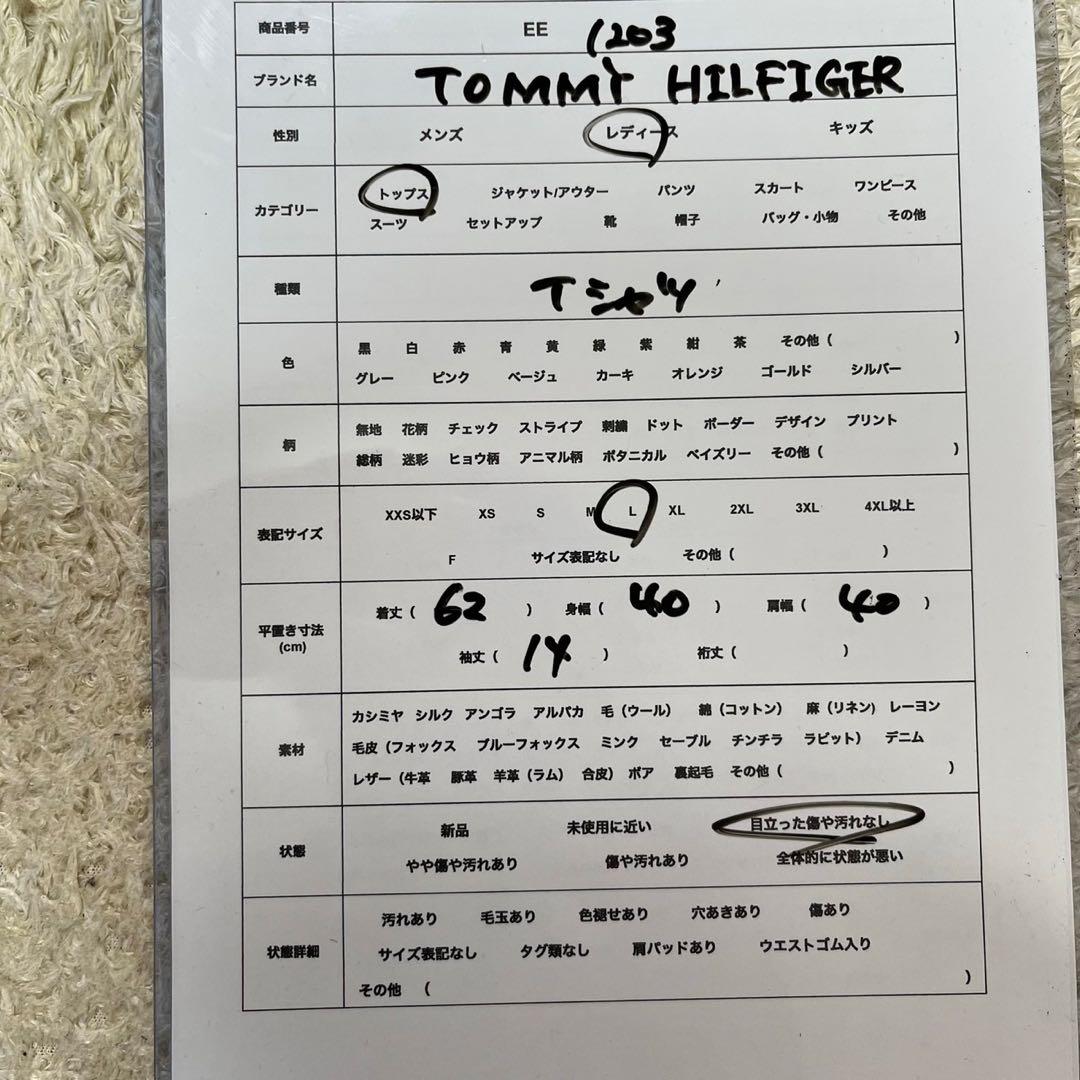 商品番号 EE 1203
ブランド名 TOMMY HILFIGER
性別 メンズ レディース キッズ
カテゴリー トップス ジャケット/アウター パンツ スカート ワンピース
スーツ セットアップ 靴 帽子 バッグ・小物 その他
種類 Tシャツ
色 黒 白 赤 青 黄 緑 紫 紺 茶 その他( )
グレー ピンク ベージュ カーキ オレンジ ゴールド シルバー
柄 無地 花柄 チェック ストライプ 刺繍 ドット ボーダー デザイン プリント
総柄 迷彩 ヒョウ柄 アニマル柄 ボタニカル ペイズリー その他( )
表記サイズ XXS以下 XS S M L XL 2XL 3XL 4XL以上
F サイズ表記なし その他( )
平置き寸法 着丈( 62 ) 身幅( 40 ) 肩幅( 40 )
(cm) 袖丈( 14 ) 裄丈( )
素材 カシミヤ シルク アンゴラ アルパカ 毛(ウール) 綿(コットン) 麻(リネン) レーヨン
毛皮(フォックス ブルーフォックス ミンク セーブル チンチラ ラビット) デニム
レザー(牛革 豚革 羊革(ラム) 合皮) ボア 裏起毛 その他( )
状態 新品 未使用に近い 目立った傷や汚れなし
やや傷や汚れあり 傷や汚れあり 全体的に状態が悪い
状態詳細 汚れあり 毛玉あり 色褪せあり 穴あきあり 傷あり
サイズ表記なし タグ類なし 肩パッドあり ウエストゴム入り
その他 ( )